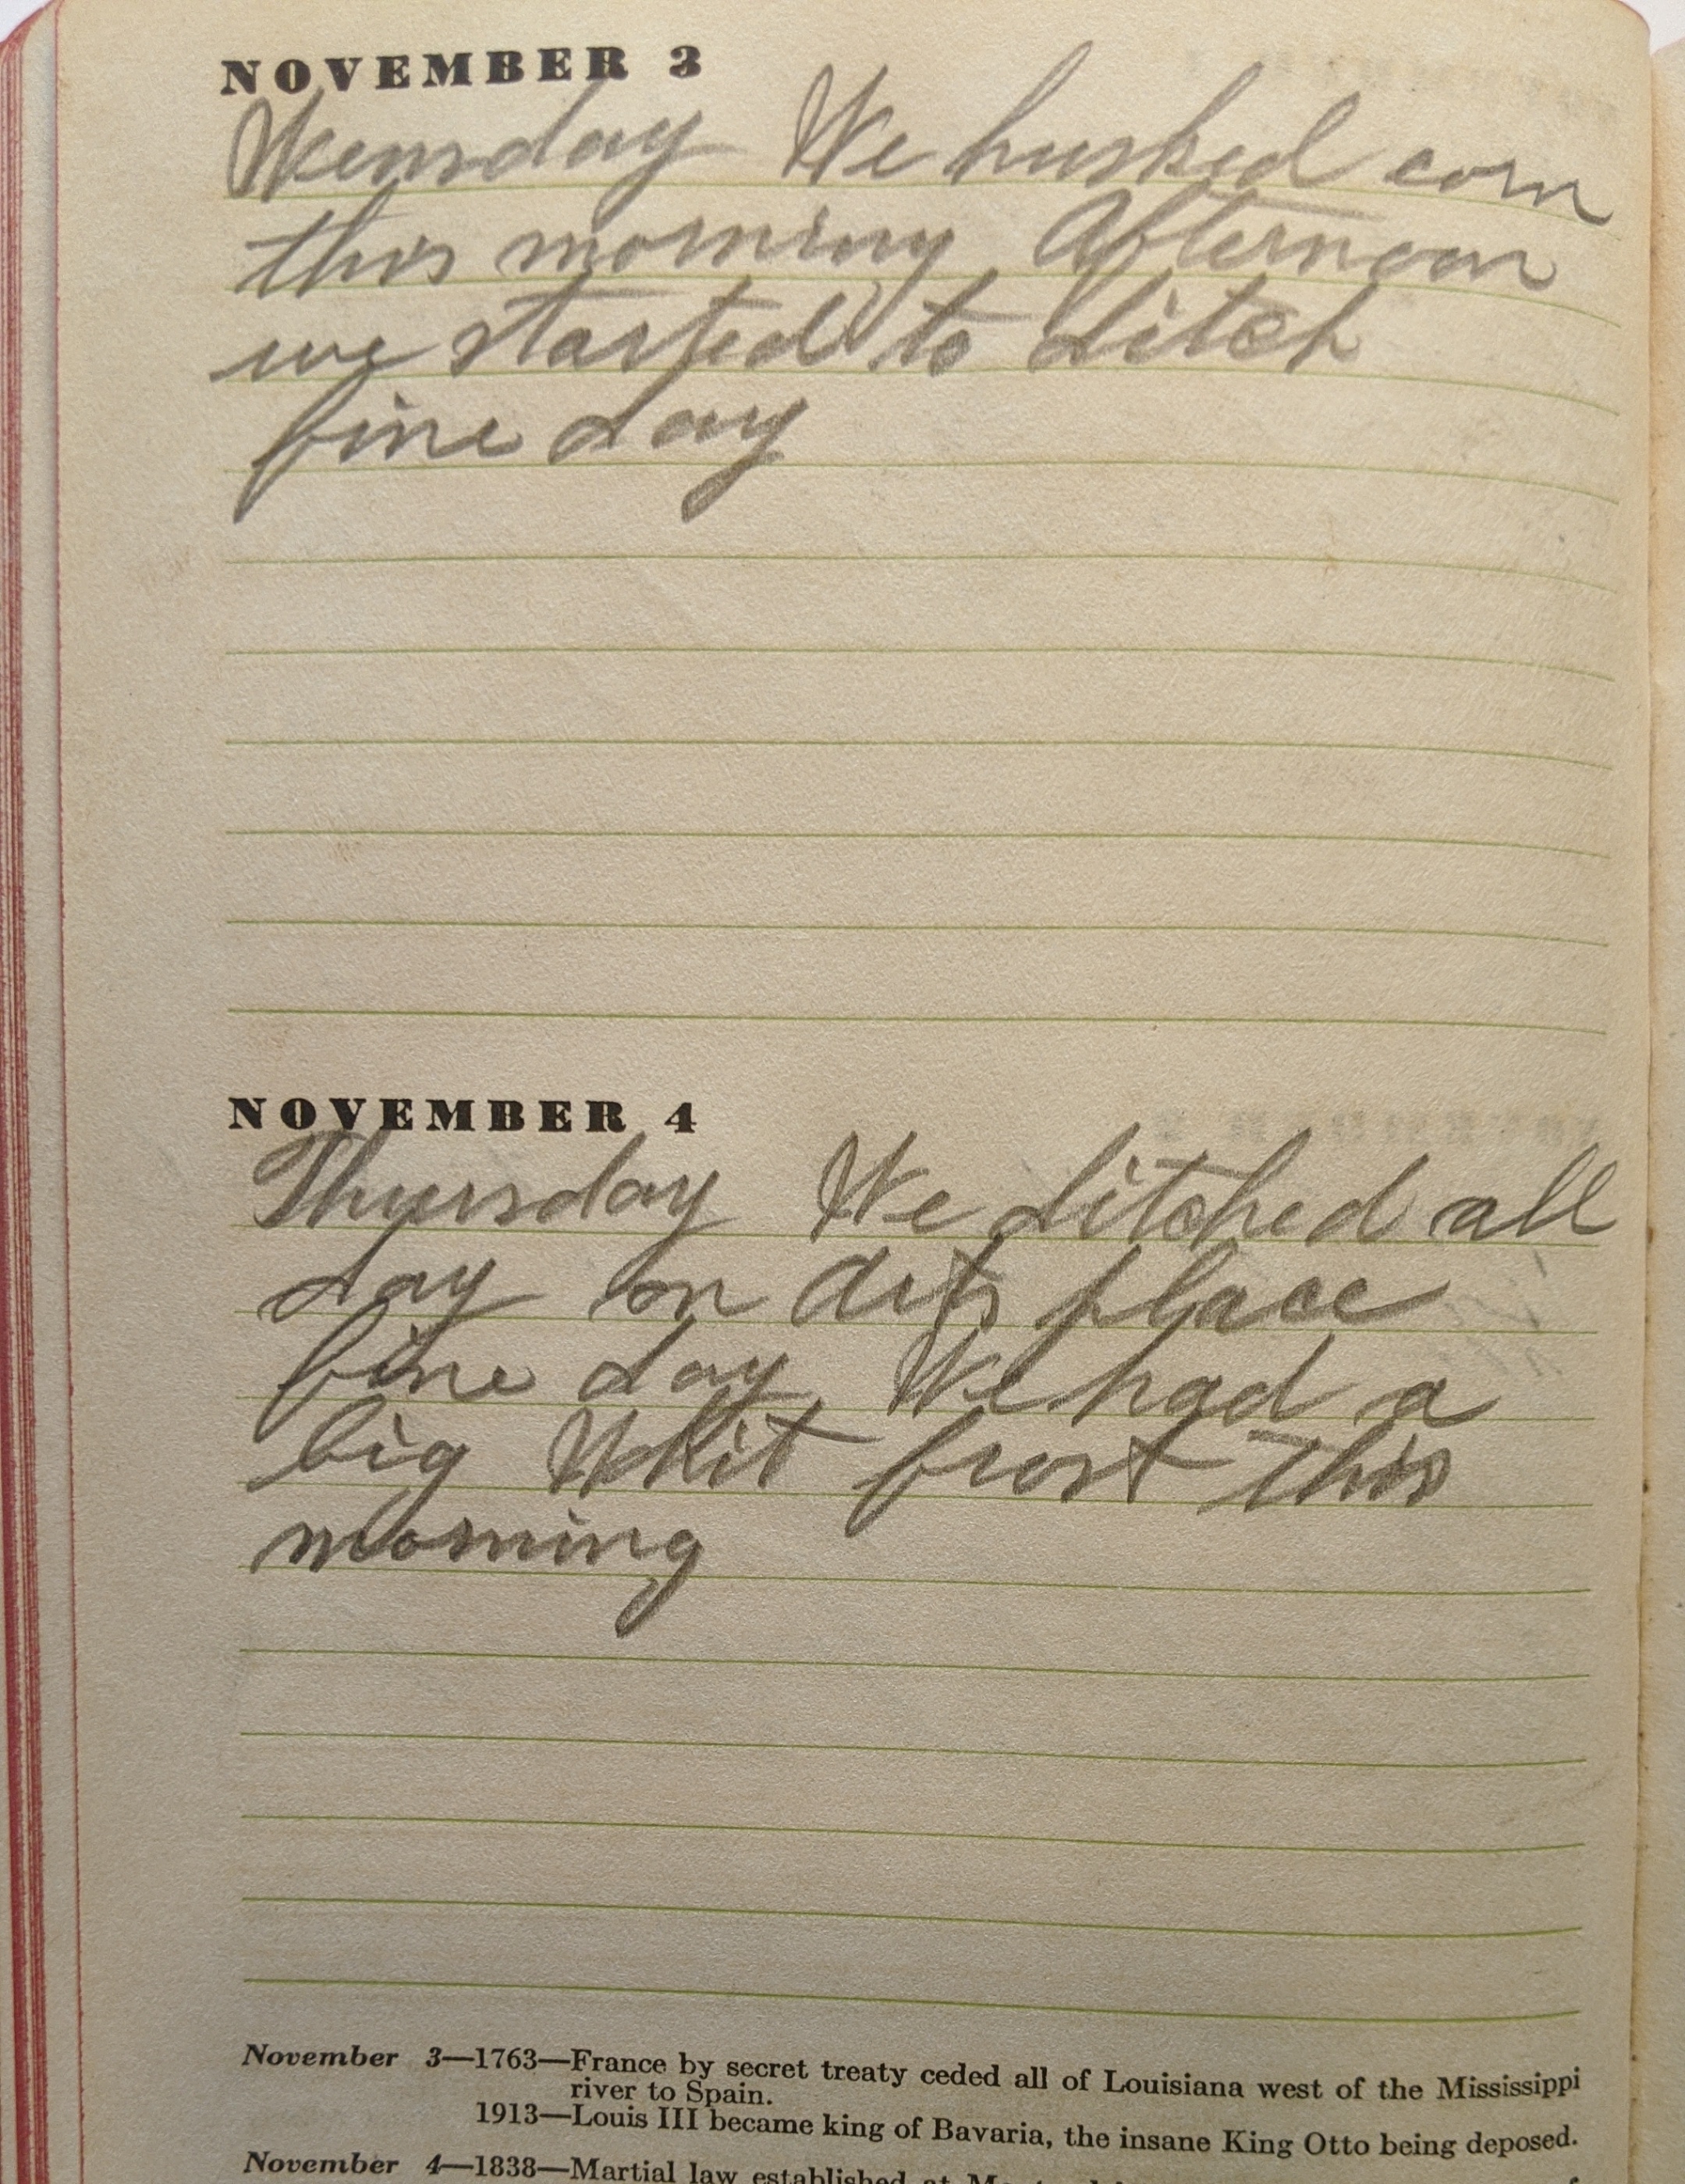 NOVEMBER 3
Wensday We husked corn
this morning Afternoon
we started to ditch
fine day
NOVEMBER 4
Thursday We ditched all
day on Arts place
fine day We had a
big Whit frost This
morning
November 3—1763—France by secret treaty ceded all of Louisiana west of the Mississippi
river to Spain.
1913—Louis III became king of Bavaria, the insane King Otto being deposed.
November 4—1838—Martial law established at